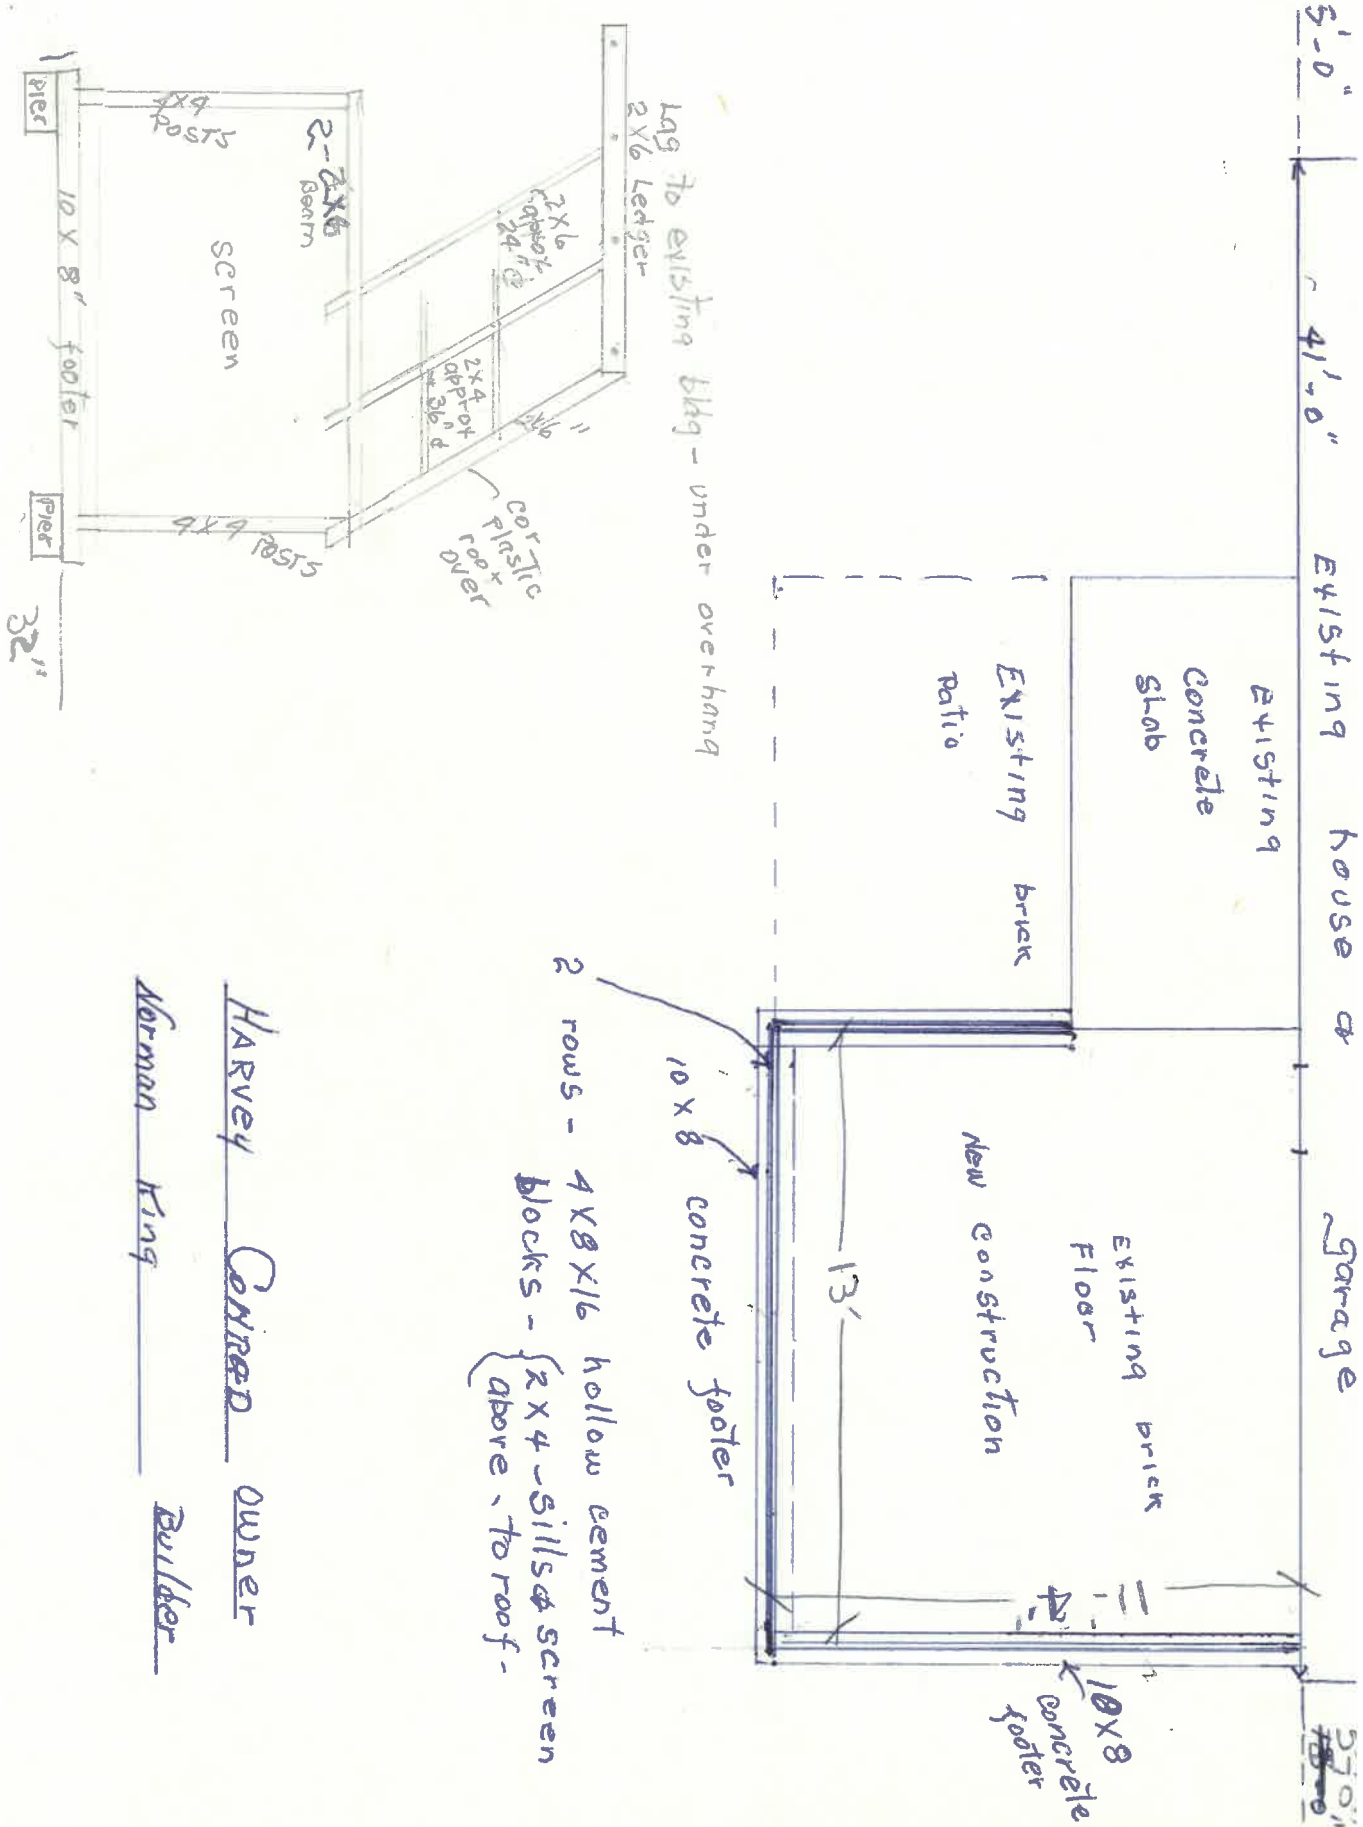 5'-0"
41'-0" Existing house & garage
5'-0"
Existing
Concrete
Slab
Existing brick
Patio
Existing brick
Floor
New Construction
13'
11'-4"
10X8
concrete
footer
10 X 8 concrete footer
2 rows - 4X8X16 hollow cement
blocks - {2X4-sills & screen
above, to roof-
HARVEY CONRAD OWNER
Norman King Builder
Lag to existing bldg - under overhang
2X6 Ledger
2X6
approx
24" @
2X4
approx
36" @
2X6"
cor-
plastic
roof
over
2-2X6
Beam
4X4
POSTS
screen
4X4 POSTS
10 X 8" footer
Pier
Pier
32"